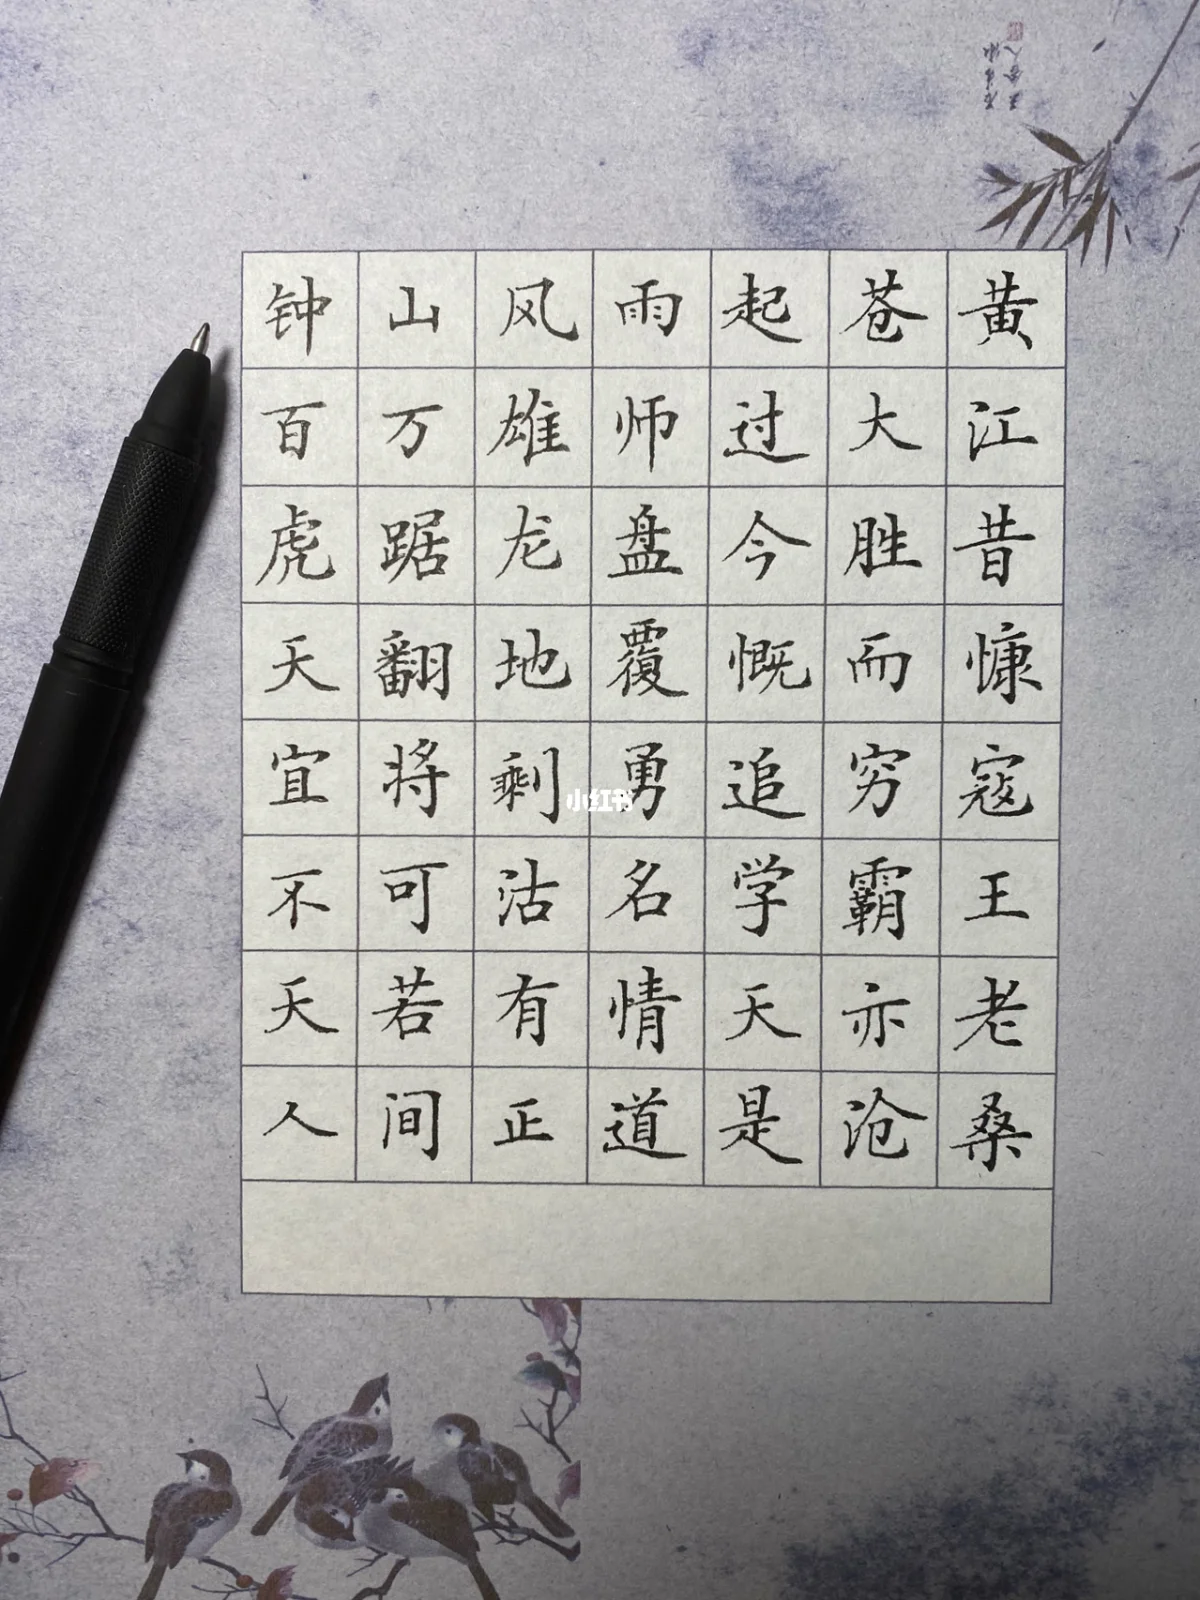 钟山风雨起苍黄
百万雄师过大江
虎踞龙盘今胜昔
天翻地覆慨而慷
宜将剩勇追穷寇
不可沽名学霸王
天若有情天亦老
人间正道是沧桑
小红书